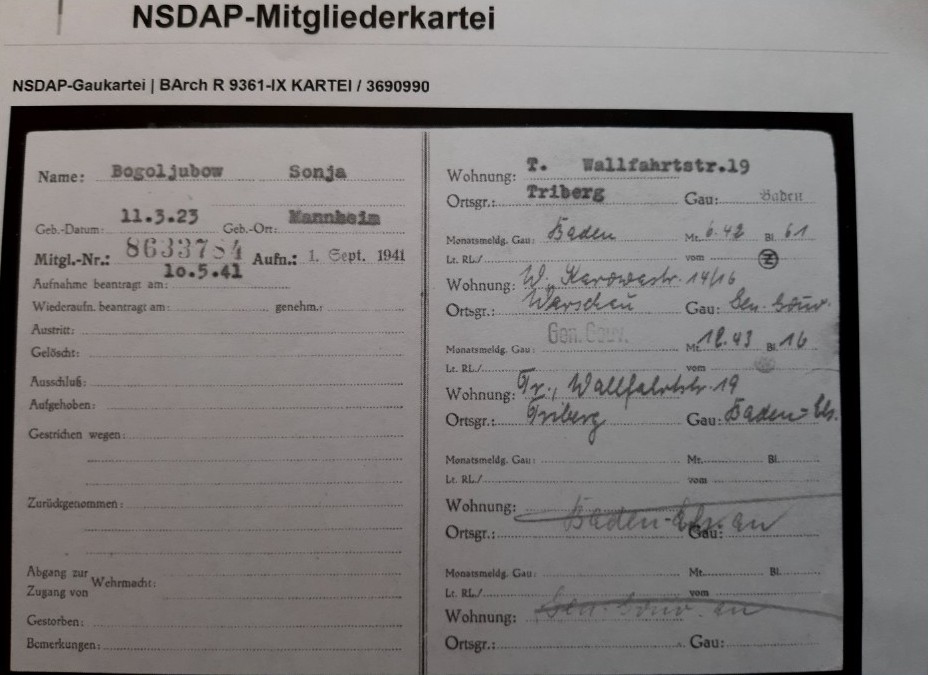 NSDAP-Mitgliederkartei
NSDAP-Gaukartei | BArch R 9361-IX KARTEI / 3690990
Name: Bogoljubow Sonja
Geb.-Datum: 11.3.23 Geb.-Ort: Mannheim
Mitgl.-Nr.: 8633784 Aufn.: 1. Sept. 1941
Aufnahme beantragt am: 10.5.41
Wiederaufn. beantragt am: genehm.:
Austritt:
Gelöscht:
Ausschluß:
Aufgehoben:
Gestrichen wegen:
Zurückgenommen:
Abgang zur
Zugang von Wehrmacht:
Gestorben:
Bemerkungen:
Wohnung: T. Wallfahrtstr.19
Ortsgr.: Triberg Gau: Baden
Monatsmeldg. Gau: Baden Mt. 6.42 Bl. 61
Lt. RL./ vom Z
Wohnung: W., 14/16
Ortsgr.: Warschau Gau: Gen. Gouv.
Monatsmeldg. Gau: Gen. Gouv. Mt. 12.43 Bl. 16
Lt. RL./ vom
Wohnung: Tr., Wallfahrtstr. 19
Ortsgr.: Triberg Gau: Baden-Els.
Monatsmeldg. Gau: Mt. Bl.
Lt. RL./ vom
Wohnung: Baden-Els. an
Ortsgr.: Gau:
Monatsmeldg. Gau: Mt. Bl.
Lt. RL./ vom
Wohnung: Gen. Gouv. an
Ortsgr.: Gau: